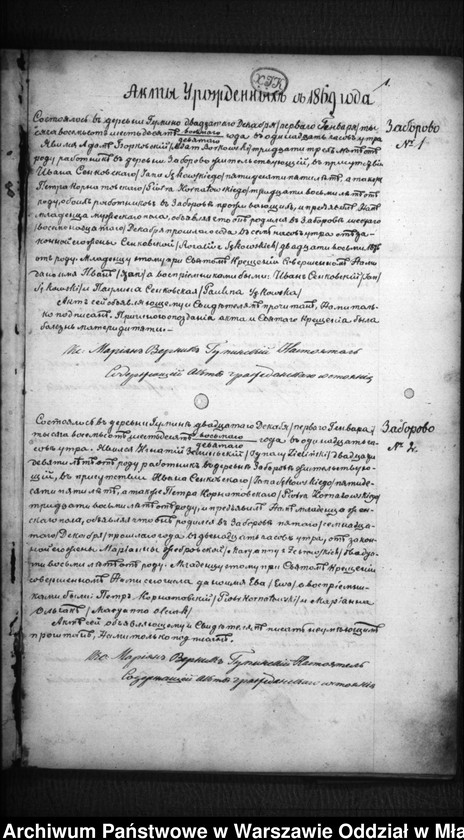 Акты Урожденныхъ съ 1869 года
1.
Заборово
№ 1
Состоялось въ деревни Гумино двадцатаго Декабря /перваго Генваря/ ты-
сяча восемьсотъ шестьдесятъ восьмаго
девятаго года въ одинадцать часовъ утра
Явился Адамъ /Adam
роду работникъ въ деревни Заборово жительствующій, въ присутствіи
Ивана Сенковскаго /Jana пятидесяти пяти лѣтъ, а также
Петра Корнатовскаго /Piotra Kornatowskiego/ тридцати восьми лѣтъ отъ
роду, обоихъ работниковъ въ Заборовѣ проживающихъ, и предъявилъ Намъ
младенца мужескаго пола, объявляя что онъ родился въ Заборовѣ шестаго
/восемнадцатаго/ Декабря прошлаго года въ семь часовъ утра отъ за-
конной его жены Сенковской двадцати восьми лѣтъ
отъ роду. Младенцу этому при Святомъ Крещеніи совершенномъ
дано имя Иванъ /Jan/ а воспріемниками были: Иванъ Сенковскій /Jan
и Паулина Сенковская /Paulina
Актъ сей объявляющему и Свидѣтелямъ прочитанъ, Нами толь-
ко подписанъ. Причиною опозданія акта и Святаго Крещенія была
болѣзнь матери дитяти.—
Кс Маріянъ Верникъ Гуминскій Настоятель
Содержащій Акты гражданскаго состоянія
Заборово
№ 2.
Состоялось въ деревни Гуминѣ двадцатаго Декабря /перваго Генваря/
тысяча восемьсотъ шестьдесятъ восьмаго
девятаго года въ одинадцать ча-
совъ утра. Явился Игнатій Зелинскій /Ignacy Zieliński/ двадцати
девяти лѣтъ отъ роду работникъ въ деревнѣ Заборовѣ жительствую-
щій, въ присутствіи Ивана Сенковскаго /Jana пятиде-
сяти пяти лѣтъ, а также Петра Корнатовскаго /Piotra Kornatowskiego/
тридцати восьми лѣтъ отъ роду, и предъявилъ Намъ младенца жен-
скаго пола, объявляя что онъ родился въ Заборовѣ пятаго /семнадца-
таго/ Декабря прошлаго года въ двенадцать часовъ утра, отъ закон-
ной его жены Маріанны /Maryanny двадца-
ти восьми лѣтъ отъ роду. Младенцу этому при Святомъ Крещеніи
совершенномъ дано имя Ева /Ewa/, а воспріемни-
ками были: Петръ Корнатовскій /Piotr Kornatowski/ и Маріанна
/Maryanna
Актъ сей объявляющему и Свидѣтелямъ писать неумѣющимъ
прочтенъ, Нами только подписанъ.
Кс Маріянъ Верникъ Гуминскій Настоятель
Содержащій Акты гражданскаго состоянія
Archiwum Państwowe w Warszawie Oddział w Mła